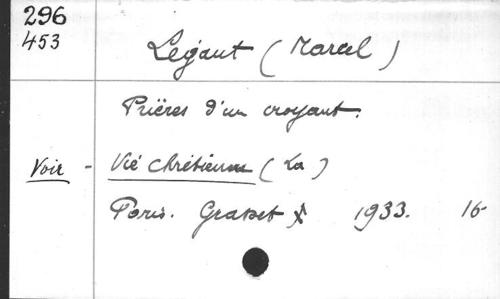 296
453
Legaut (Marcel)
Prières d'un croyant.
Voir - Vie chrétienne (La)
Paris. Grasset 1933. 16